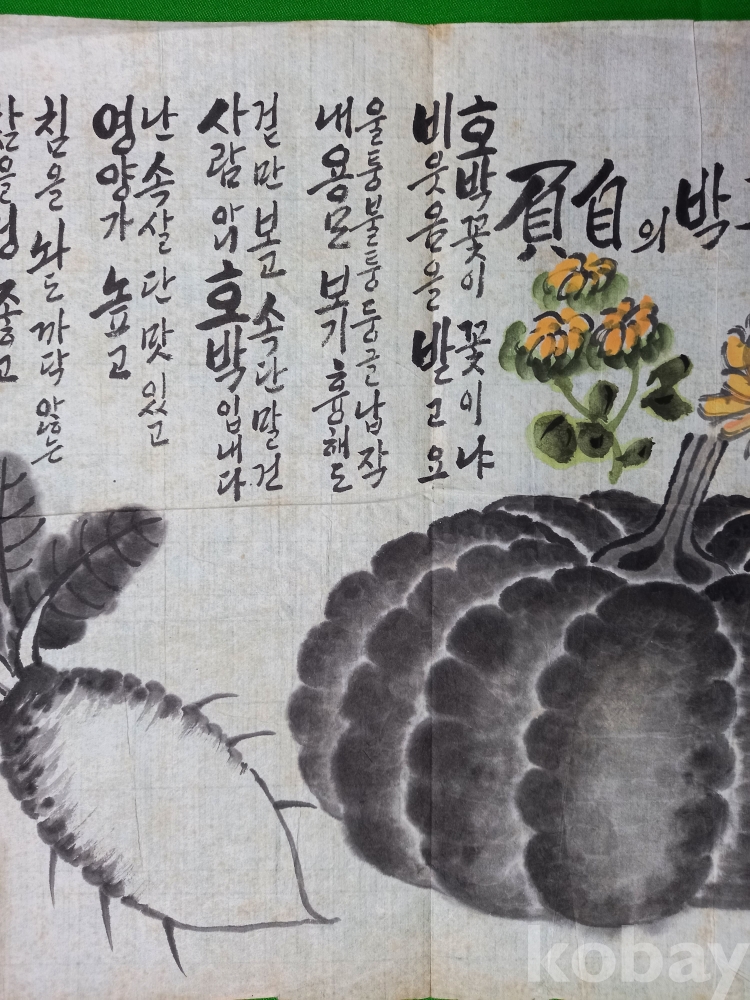 박의 自負
호박꽃이 꽃이냐
비웃음을 받고요
울퉁불퉁 둥글납작
내 용모 보기 흉해도
겉만 보고 속단말건
사람 아니 호박입니다
난 속살 단맛 있고
영양가 높고
침을 놔도 까닥 않는
좋고
kobay